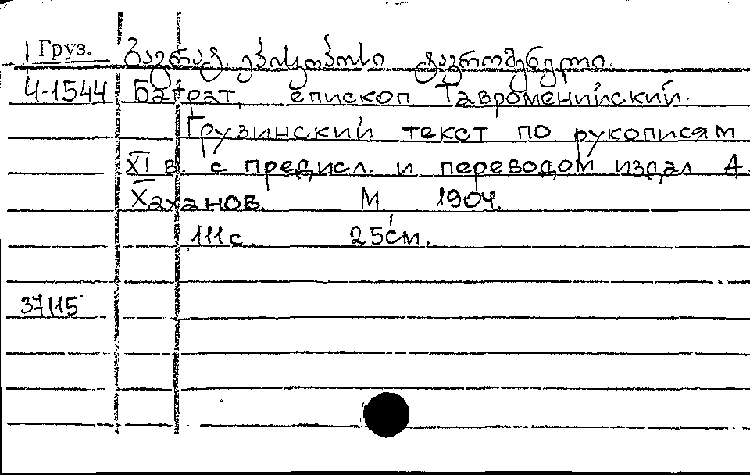 Груз. ბაგრატ ეპისკოპოსი ტავრომენელი.
4-1544 Баграт, епископ Тавроменийский.
Грузинский текст по рукописям
XI в. с предисл. и переводом издал А.
Хаханов. М 1904.
111с 25см.
37115